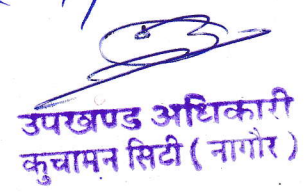 उपखण्ड अधिकारी
कुचामन सिटी ( नागौर )